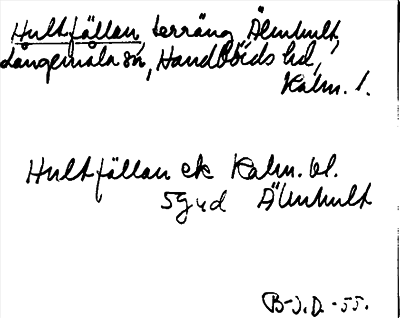 Hultfällan, terräng, Älmhult,
Långemåla sn, Handbörds hd,
Kalm. l.
Hultfällan ek Kalm. bl.
5g vd Älmhult
B-J.D. -55.